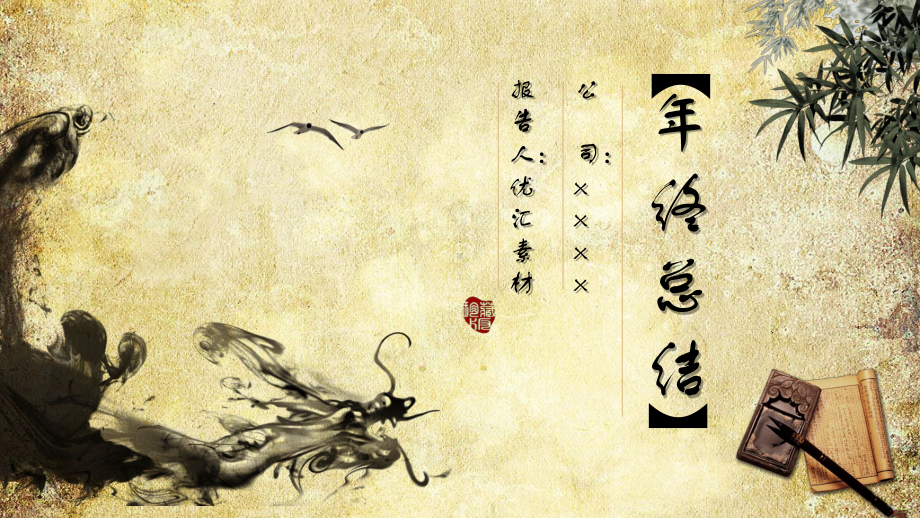 【年终总结】
公司：××××
报告人：优汇素材